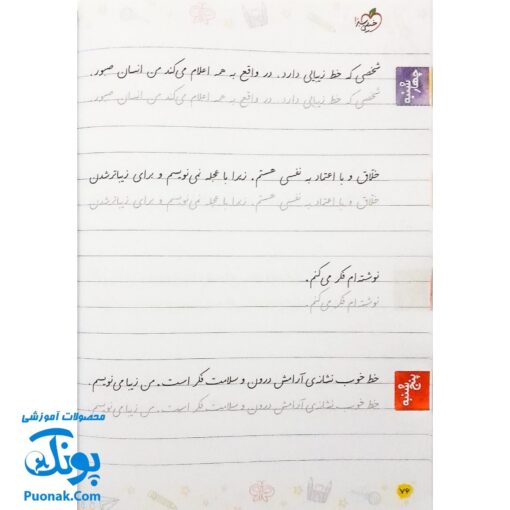 خیلی سبز
چهارشنبه
شخصی که خط زیبایی دارد. در واقع به همه اعلام می‌کند من انسان صبور
شخصی که خط زیبایی دارد. در واقع به همه اعلام می‌کند من انسان صبور
خلاق و با اعتماد به نفسی هستم. زیرا با عجله نمی‌نویسم و برای زیباتر شدن
خلاق و با اعتماد به نفسی هستم. زیرا با عجله نمی‌نویسم و برای زیباتر شدن
نوشته‌ام فکر می‌کنم.
نوشته‌ام فکر می‌کنم.
پنج‌شنبه
خط خوب نشانه‌ی آرامش درون و سلامت فکر است. من زیبا می‌نویسم.
خط خوب نشانه‌ی آرامش درون و سلامت فکر است. من زیبا می‌نویسم.
محصولات آموزشی
پونک
Puonak.Com
۷۶